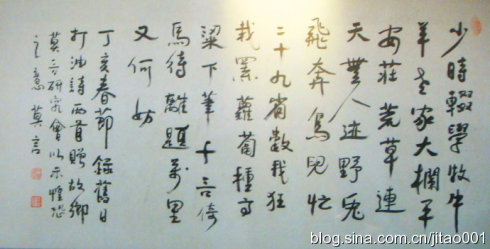 少時輟學牧牛
羊老家大欄平
安莊荒草連
天無人迹野兔
飛奔鳥兒忙
二十九省數我狂
栽罷蘿蔔種高
粱下筆千言倚
馬待離題萬里
又何妨
丁亥春節錄舊日
打油詩兩首贈故鄉
莫言研究會以示惶恐
之意莫言
blog.sina.com.cn/jitao001